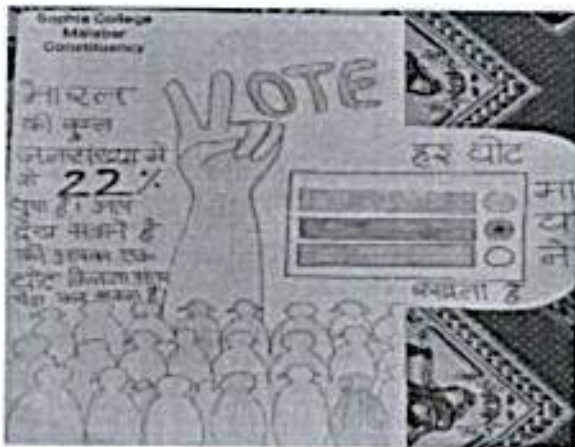 Sophia College
Malabar
Constituency
VOTE
भारत
की कुल
जनसंख्या में
से 22%
युवा है। आप
देख सकते है
की आपका एक
वोट कितना
हर वोट
मा
य
ने
रखता है